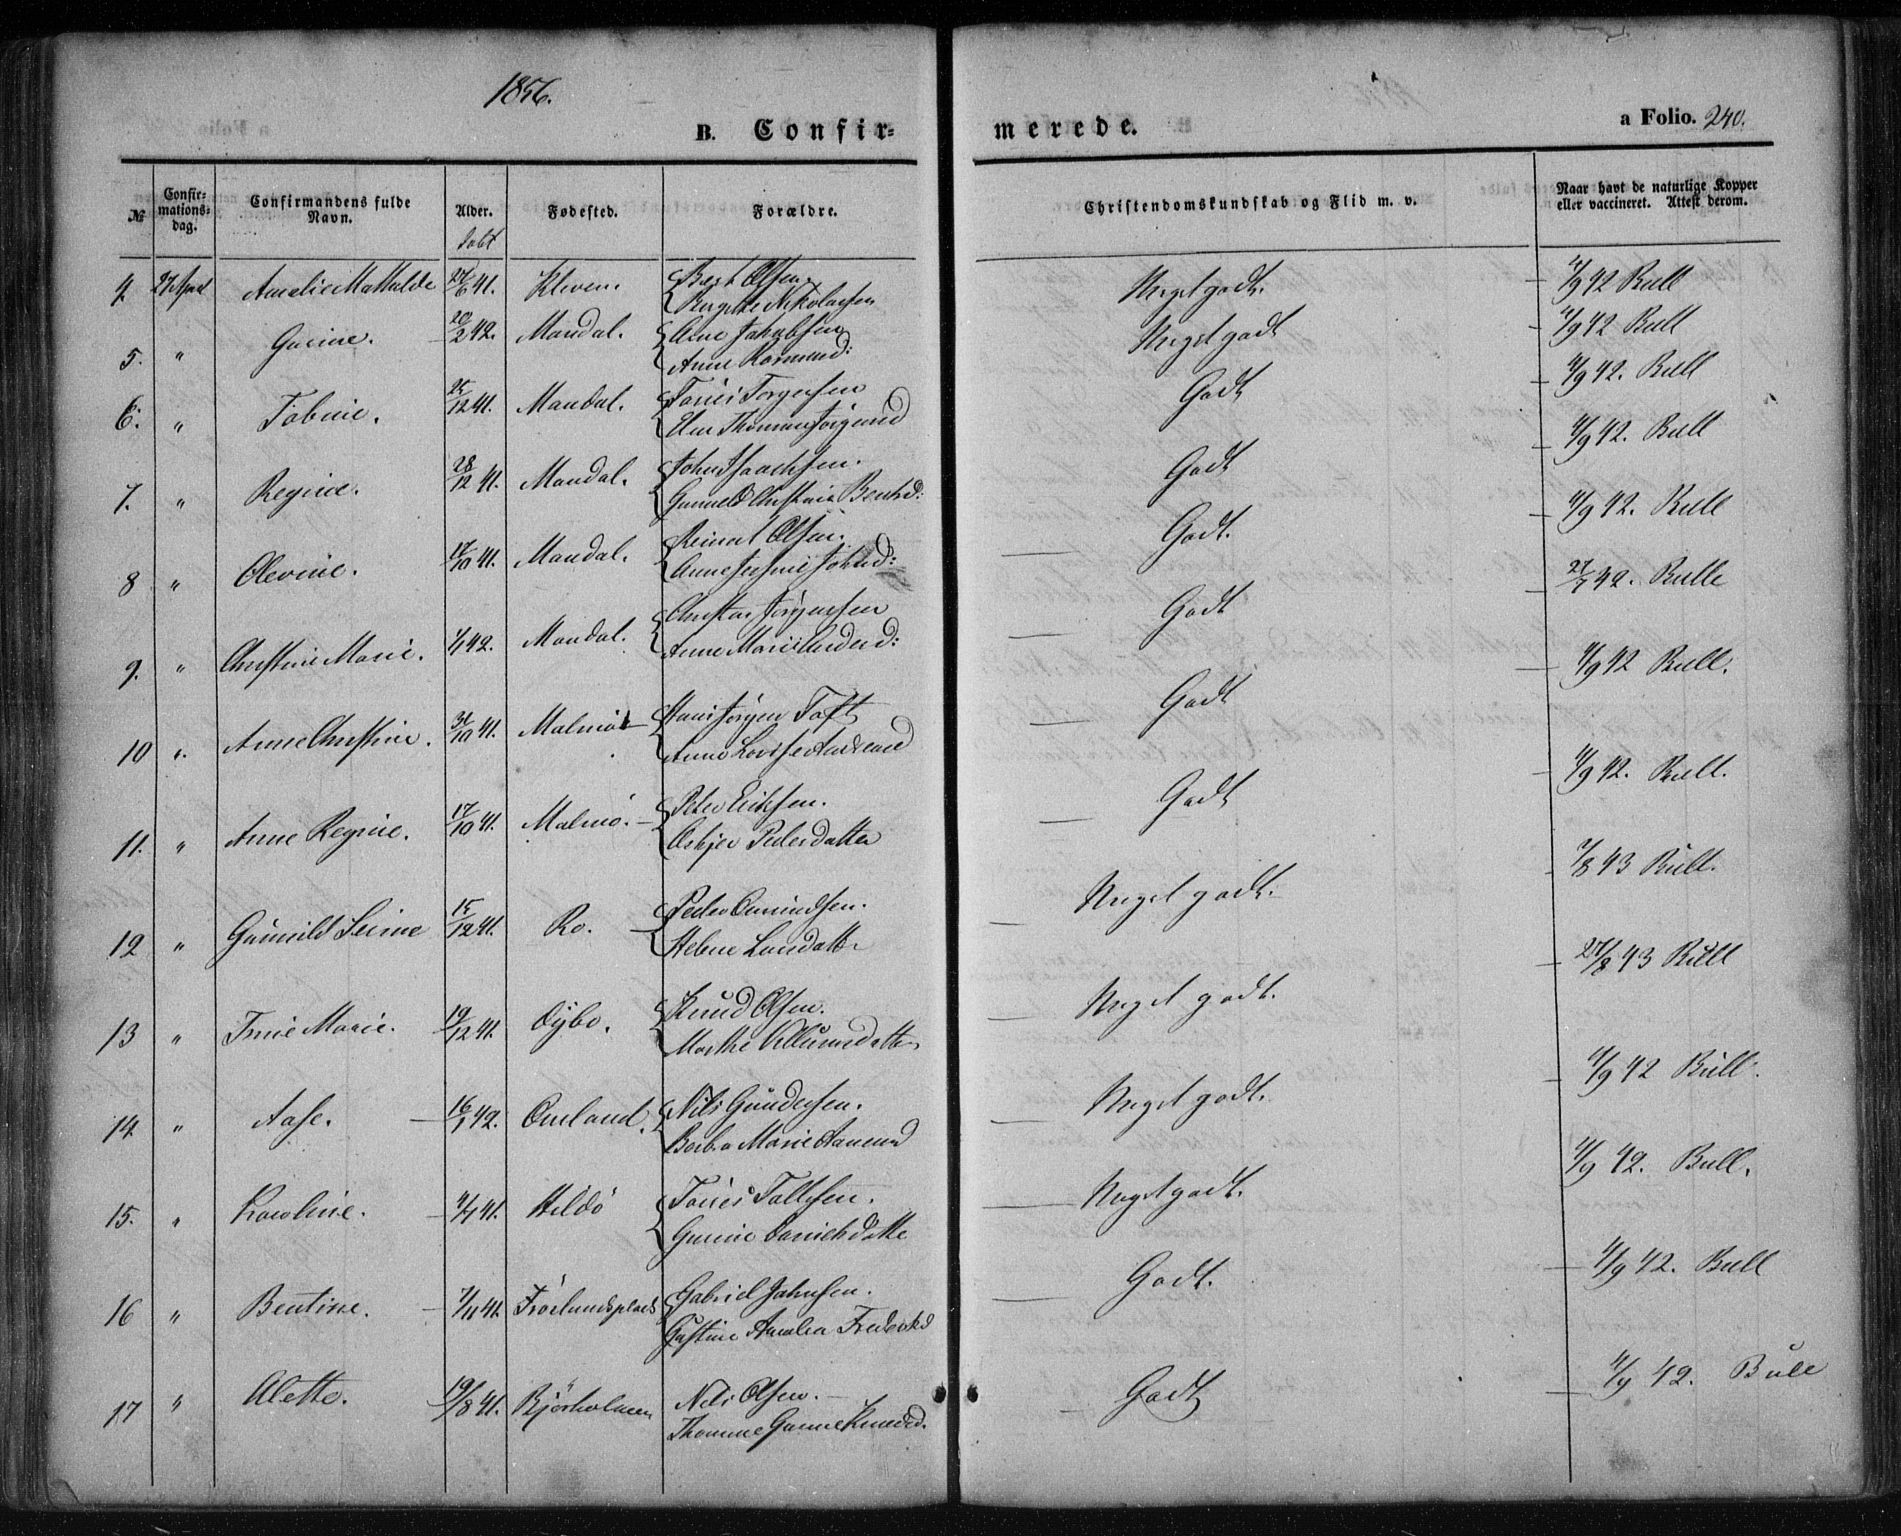 1856.
B. Confir=
merede.
a Folio. 240.
№
Confir-
mations-
dag.
Confirmandens fulde
Navn.
Alder.
døbt
Fødested.
Forældre.
Christendomskundskab og Flid m. v.
Naar havt de naturlige Kopper
eller vaccineret. Attest derom.
4. 27 April Amalie Mathilde 27/6 41. Kleven. Bert Olsen. Meget godt. 4/9 42 Bull
Birgitte Nikolaisen
5. " Gurine. 20/2 42. Mandal. Arne Jakobsen Meget godt 4/9 42 Bull
Anne Rasmusd:
6. " Tobine. 25/12 41. Mandal. Tønnes Torgersen Godt 4/9 42. Bull
7. " Regine. 28/12 41. Mandal. John Isaachsen. Godt 4/9 42. Bull
Gunneld Christine Bentsd:
8 " Olevine. 17/10 41. Mandal. Reinert Olsen. Godt. 4/9 42. Bull
9. " Christine Marie. 1/1 42. Mandal. Christen Jørgensen Godt 27/7 42. Bull
Anne Marie Andersd:
10 " Anne Christine. 31/10 41. Malmø Hans Jørgen Toft Godt 4/9 42 Bull.
Anne Lovise
11. " Anne Regine. 17/10 41. Malmø. Peter Erichsen. Godt 4/9 42. Bull.
Asbjer Pedersdatter
12 " Gunnild Serine 15/12 41. Ro. Peder Omundsen. Meget godt. 7/8 43 Bull.
Helene Larsdatter
13 " Trine Marie. 19/12 41. Oybo. Knud Olsen. Meget godt. 27/8 43 Bull
Marthe Villumsdatter
14 " Aase. 16/1 42. Omland. Nils Gundersen. Meget godt. 4/9 42 Bull.
Berthe Marie Aanensd
15. " Karoline. 4/7 41. Hildø Tønnes Tollefsen. Meget godt. 4/9 42. Bull.
Gurine Danielsdatte
16 " Bentine. 7/11 41. Frøslundsplads Gabriel Jahnsen. Godt. 4/9 42. Bull
Gustine Amalia Frederiksd
17 " Alette. 19/8 41. Bjørnholmen Nils Olsen. Godt 4/9 42. Bull
Thomine Gurine Knudsd.